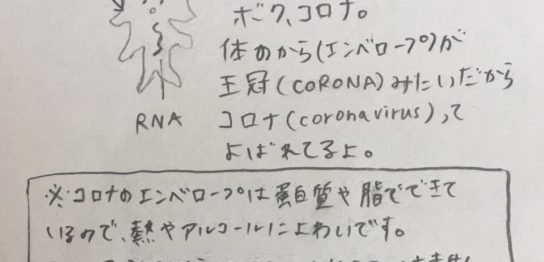 ボク、コロナ。
体のから(エンベロープ)が
王冠(CORONA)みたいだから
RNA
コロナ(coronavirus)って
よばれてるよ。
※コロナのエンベロープは蛋白質や脂でできて
いるので、熱やアルコールによわいです。